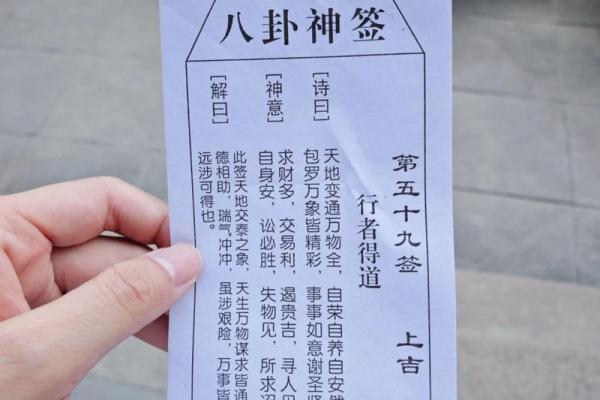 八卦神签
第五十九签 上吉
行者得道
[诗曰]
天地变通万物全，自荣自养自安然
包罗万象皆精彩，事事如意谢圣贤
[神意]
求财多，交易利，遏贵吉，寻人见
自身安，讼必胜，失物见，所求
[解曰]
此签天地交泰之象，天生万物谋求皆通
德相助，瑞气冲冲，虽涉艰险，万事皆
远涉可得也。